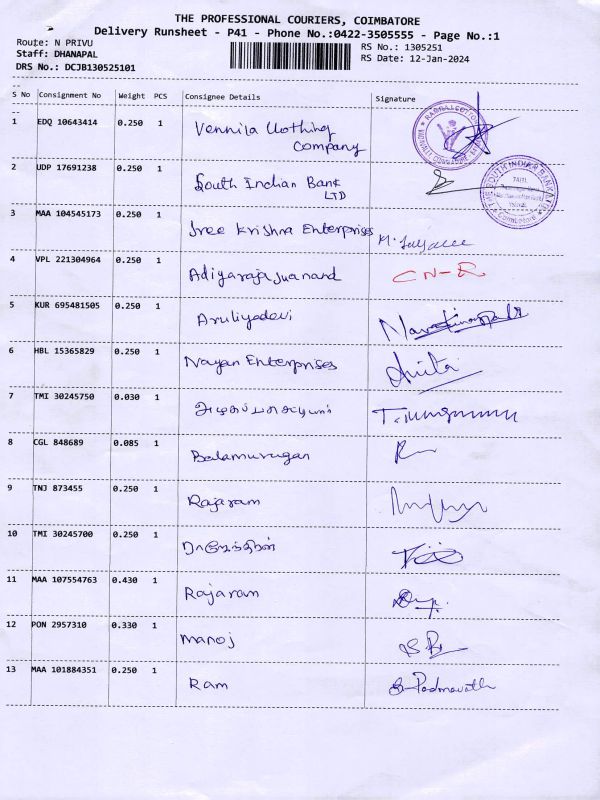 THE PROFESSIONAL COURIERS, COIMBATORE
Delivery Runsheet - P41 - Phone No.:0422-3505555 - Page No.:1
Route: N PRIVU
RS No.: 1305251
Staff: DHANAPAL
RS Date: 12-Jan-2024
DRS No.: DCJB130525101
S No Consignment No Weight PCS Consignee Details Signature
1 EDQ 10643414 0.250 1 Vennila Clothing
Company
2 UDP 17691238 0.250 1 South Indian Bank
LTD
3 MAA 104545173 0.250 1 Sree Krishna Enterprises
4 VPL 221304964 0.250 1 Adiyaraja Juanand CN-R
5 KUR 695481505 0.250 1 Aruliyadevi
6 HBL 15365829 0.250 1 Nayan Enterprises Anita
7 TMI 30245750 0.030 1
8 CGL 848689 0.085 1 Balamurugan
9 TNJ 873455 0.250 1 Rajaram
10 TMI 30245700 0.250 1
11 MAA 107554763 0.430 1 Rajaram
12 PON 2957310 0.330 1 Manoj
13 MAA 101884351 0.250 1 Ram S. Padmavathi